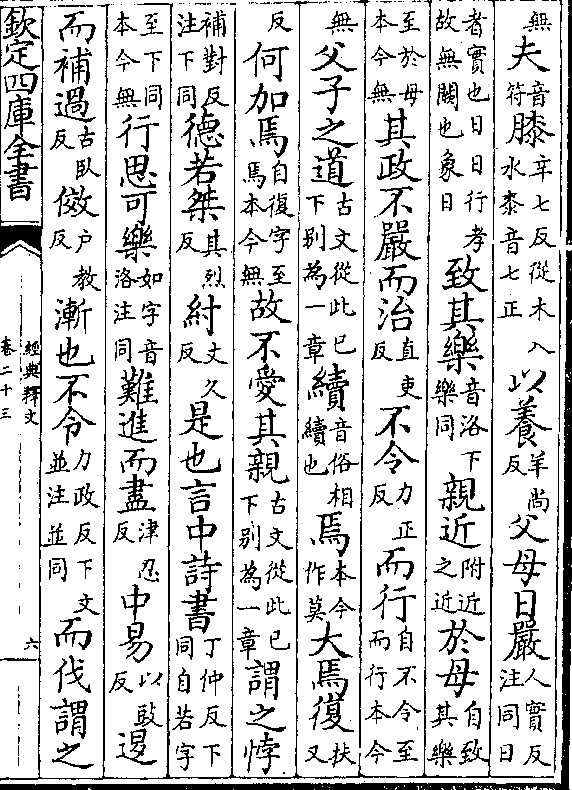 無夫音符膝辛七反從木入水桼音七正以養羊尚反父母日嚴人實反注同日
者實也日日行孝故無闕也象日致其樂音洛下樂同親近附近之近於母自致其樂
至於母本今無其政不嚴而治直吏反不令力正反而行自不令至而行本今
無父子之道古文從此已下别為一章續音俗相續也焉本今作莫大焉復扶又
反何加焉自復字至焉本今無故不愛其親古文從此已下别為一章謂之悖
補對反注下同德若桀其烈反紂丈久反是也言中詩書丁仲反下同自若字
至下同本今無行思可樂如字音洛注同難進而盡津忍反中易以豉反退
而補過古臥反傚戶教反漸也不令力政反下文並注並同而伐謂之
欽定四庫全書
經典釋文
卷二十三
六